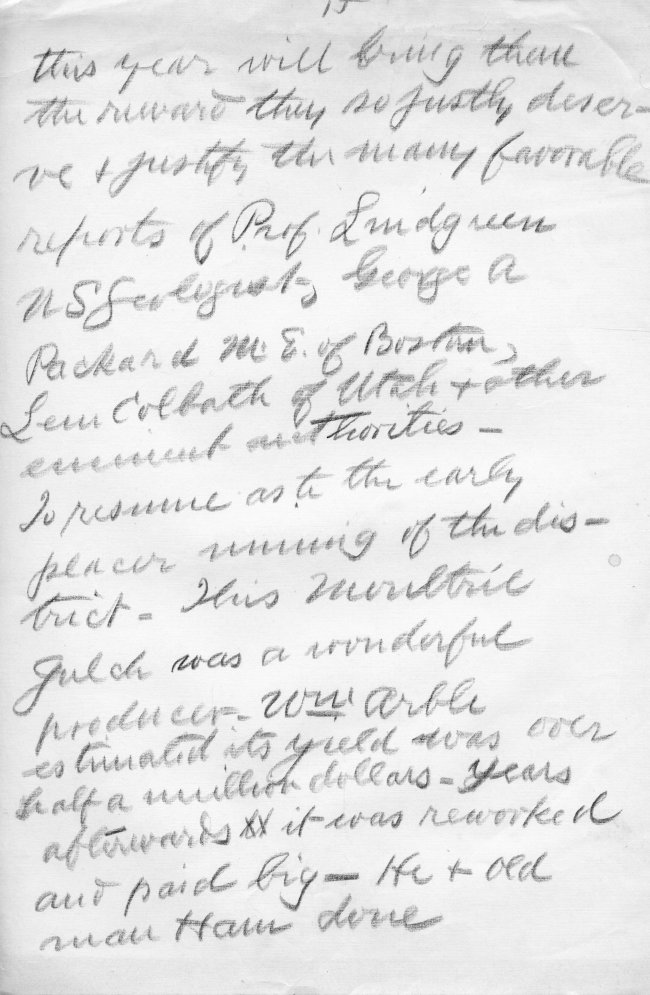 15
this year will bring them
the reward they so justly deser-
ve + justify the many favorable
reports of Prof. Lindgreen
U S Geologist, George A
Packard M. E. of Boston,
Lem Colbath of Utah + other
eminent authorities -
To resume as to the early
placer mining of the dis-
trict - This Moultrie
Gulch was a wonderful
producer - Wm Arble
estimated its yield was over
half a million dollars - years
afterwards it was reworked
and paid big - He + old
man Ham done